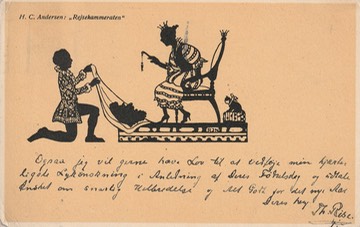 H. C. Andersen: „Rejsekammeraten"
Ogsaa jeg vil gerne have Lov til at vedføje min hjerte-
ligste Lykønskning i Anledning af Deres Fødselsdag og udtale
Ønsket om snarlig Helbredelse og Alt Godt for det nye Aar
Deres
Th.